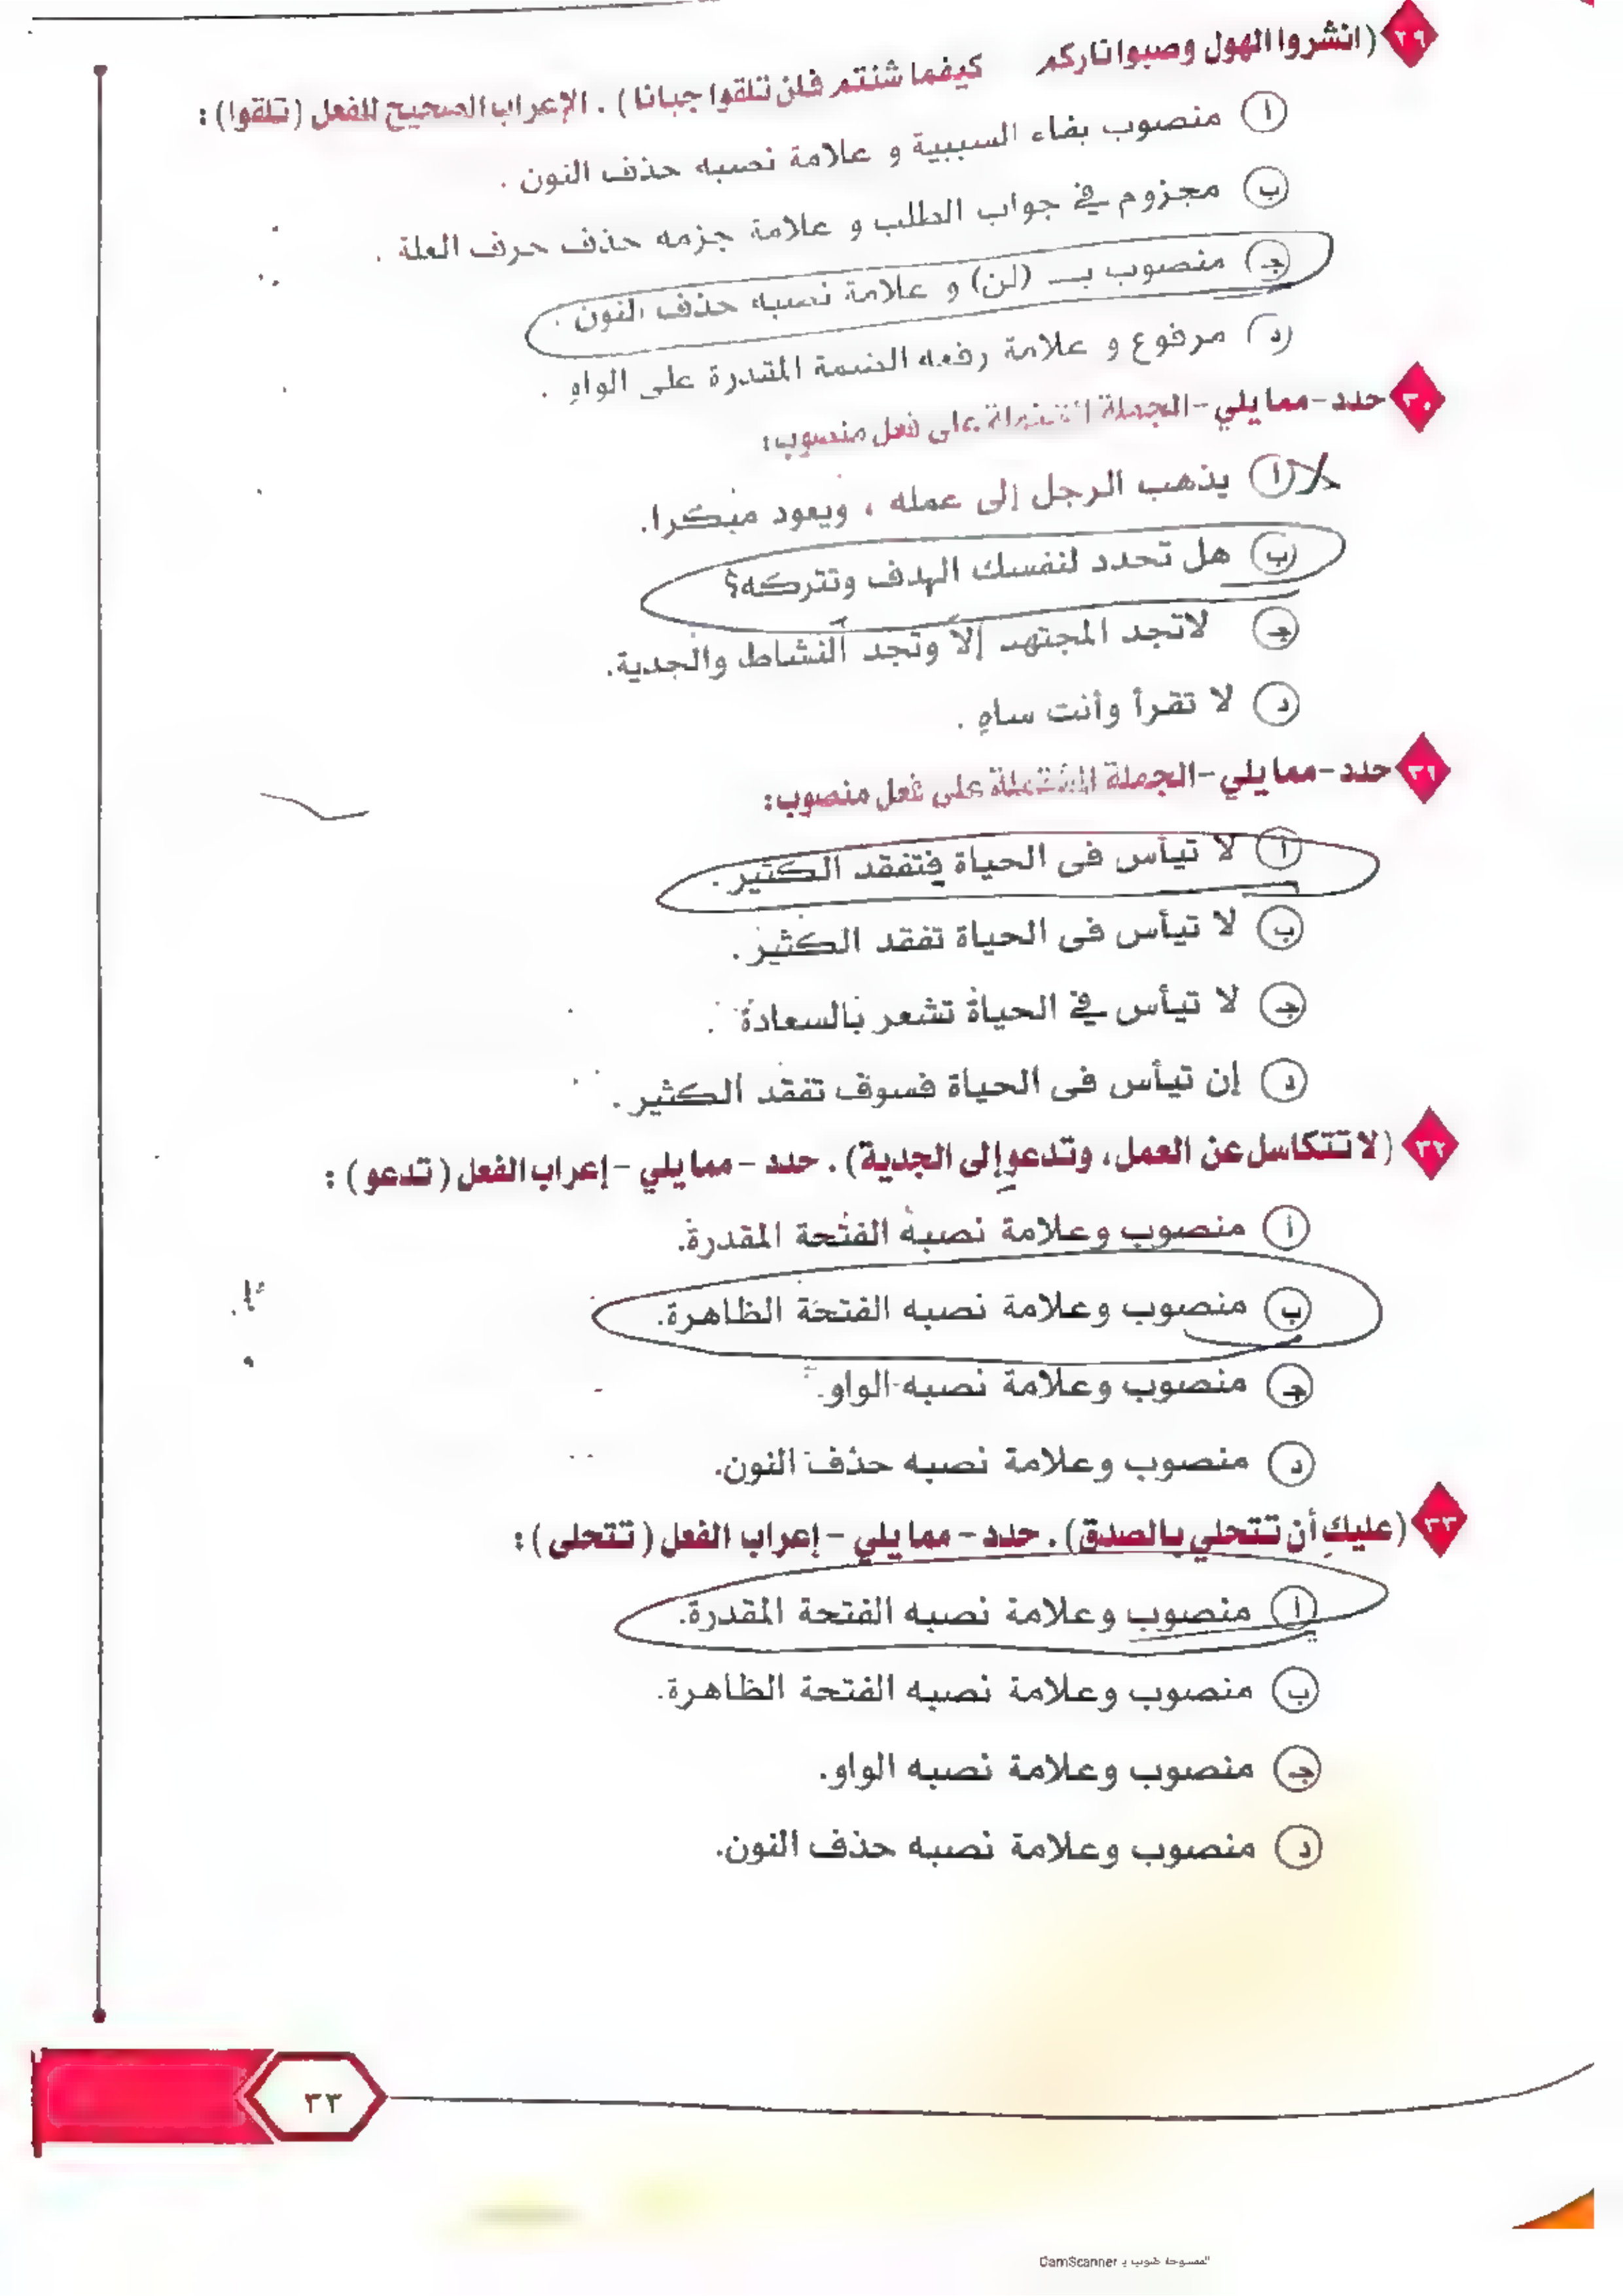 ٢٩ (انشروا الهول وصبوا ناركم كيفما شئتم فلن تلقوا جبانا) . الإعراب الصحيح للفعل (تلقوا) :
أ منصوب بفاء السببية و علامة نصبه حذف النون .
ب مجزوم في جواب الطلب و علامة جزمه حذف حرف العلة .
جـ منصوب بـ (لن) و علامة نصبه حذف النون .
د مرفوع و علامة رفعه الضمة المقدرة على الواو .
٣٠ حدد - مما يلي - الجملة المشتملة على فعل منصوب:
أ يذهب الرجل إلى عمله ، ويعود مبكرا.
ب هل تحدد لنفسك الهدف وتتركه؟
جـ لاتجد المجتهد إلا وتجد النشاط والجدية.
د لا تقرأ وأنت ساهِ .
٣١ حدد - مما يلي - الجملة المشتملة على فعل منصوب:
أ لا تيأس فى الحياة فتفقد الكثير .
ب لا تيأس فى الحياة تفقد الكثير .
جـ لا تيأس في الحياة تشعر بالسعادة .
د إن تيأس فى الحياة فسوف تفقد الكثير .
٣٢ (لا تتكاسل عن العمل، وتدعو إلى الجدية) . حدد - مما يلي - إعراب الفعل (تدعو) :
أ منصوب وعلامة نصبه الفتحة المقدرة.
ب منصوب وعلامة نصبه الفتحة الظاهرة.
جـ منصوب وعلامة نصبه الواو.
د منصوب وعلامة نصبه حذف النون.
٣٣ (عليكِ أن تتحلي بالصدق) . حدد - مما يلي - إعراب الفعل (تتحلى) :
أ منصوب وعلامة نصبه الفتحة المقدرة.
ب منصوب وعلامة نصبه الفتحة الظاهرة.
جـ منصوب وعلامة نصبه الواو.
د منصوب وعلامة نصبه حذف النون.
٣٣
الممسوحة ضوئيا بـ CamScanner